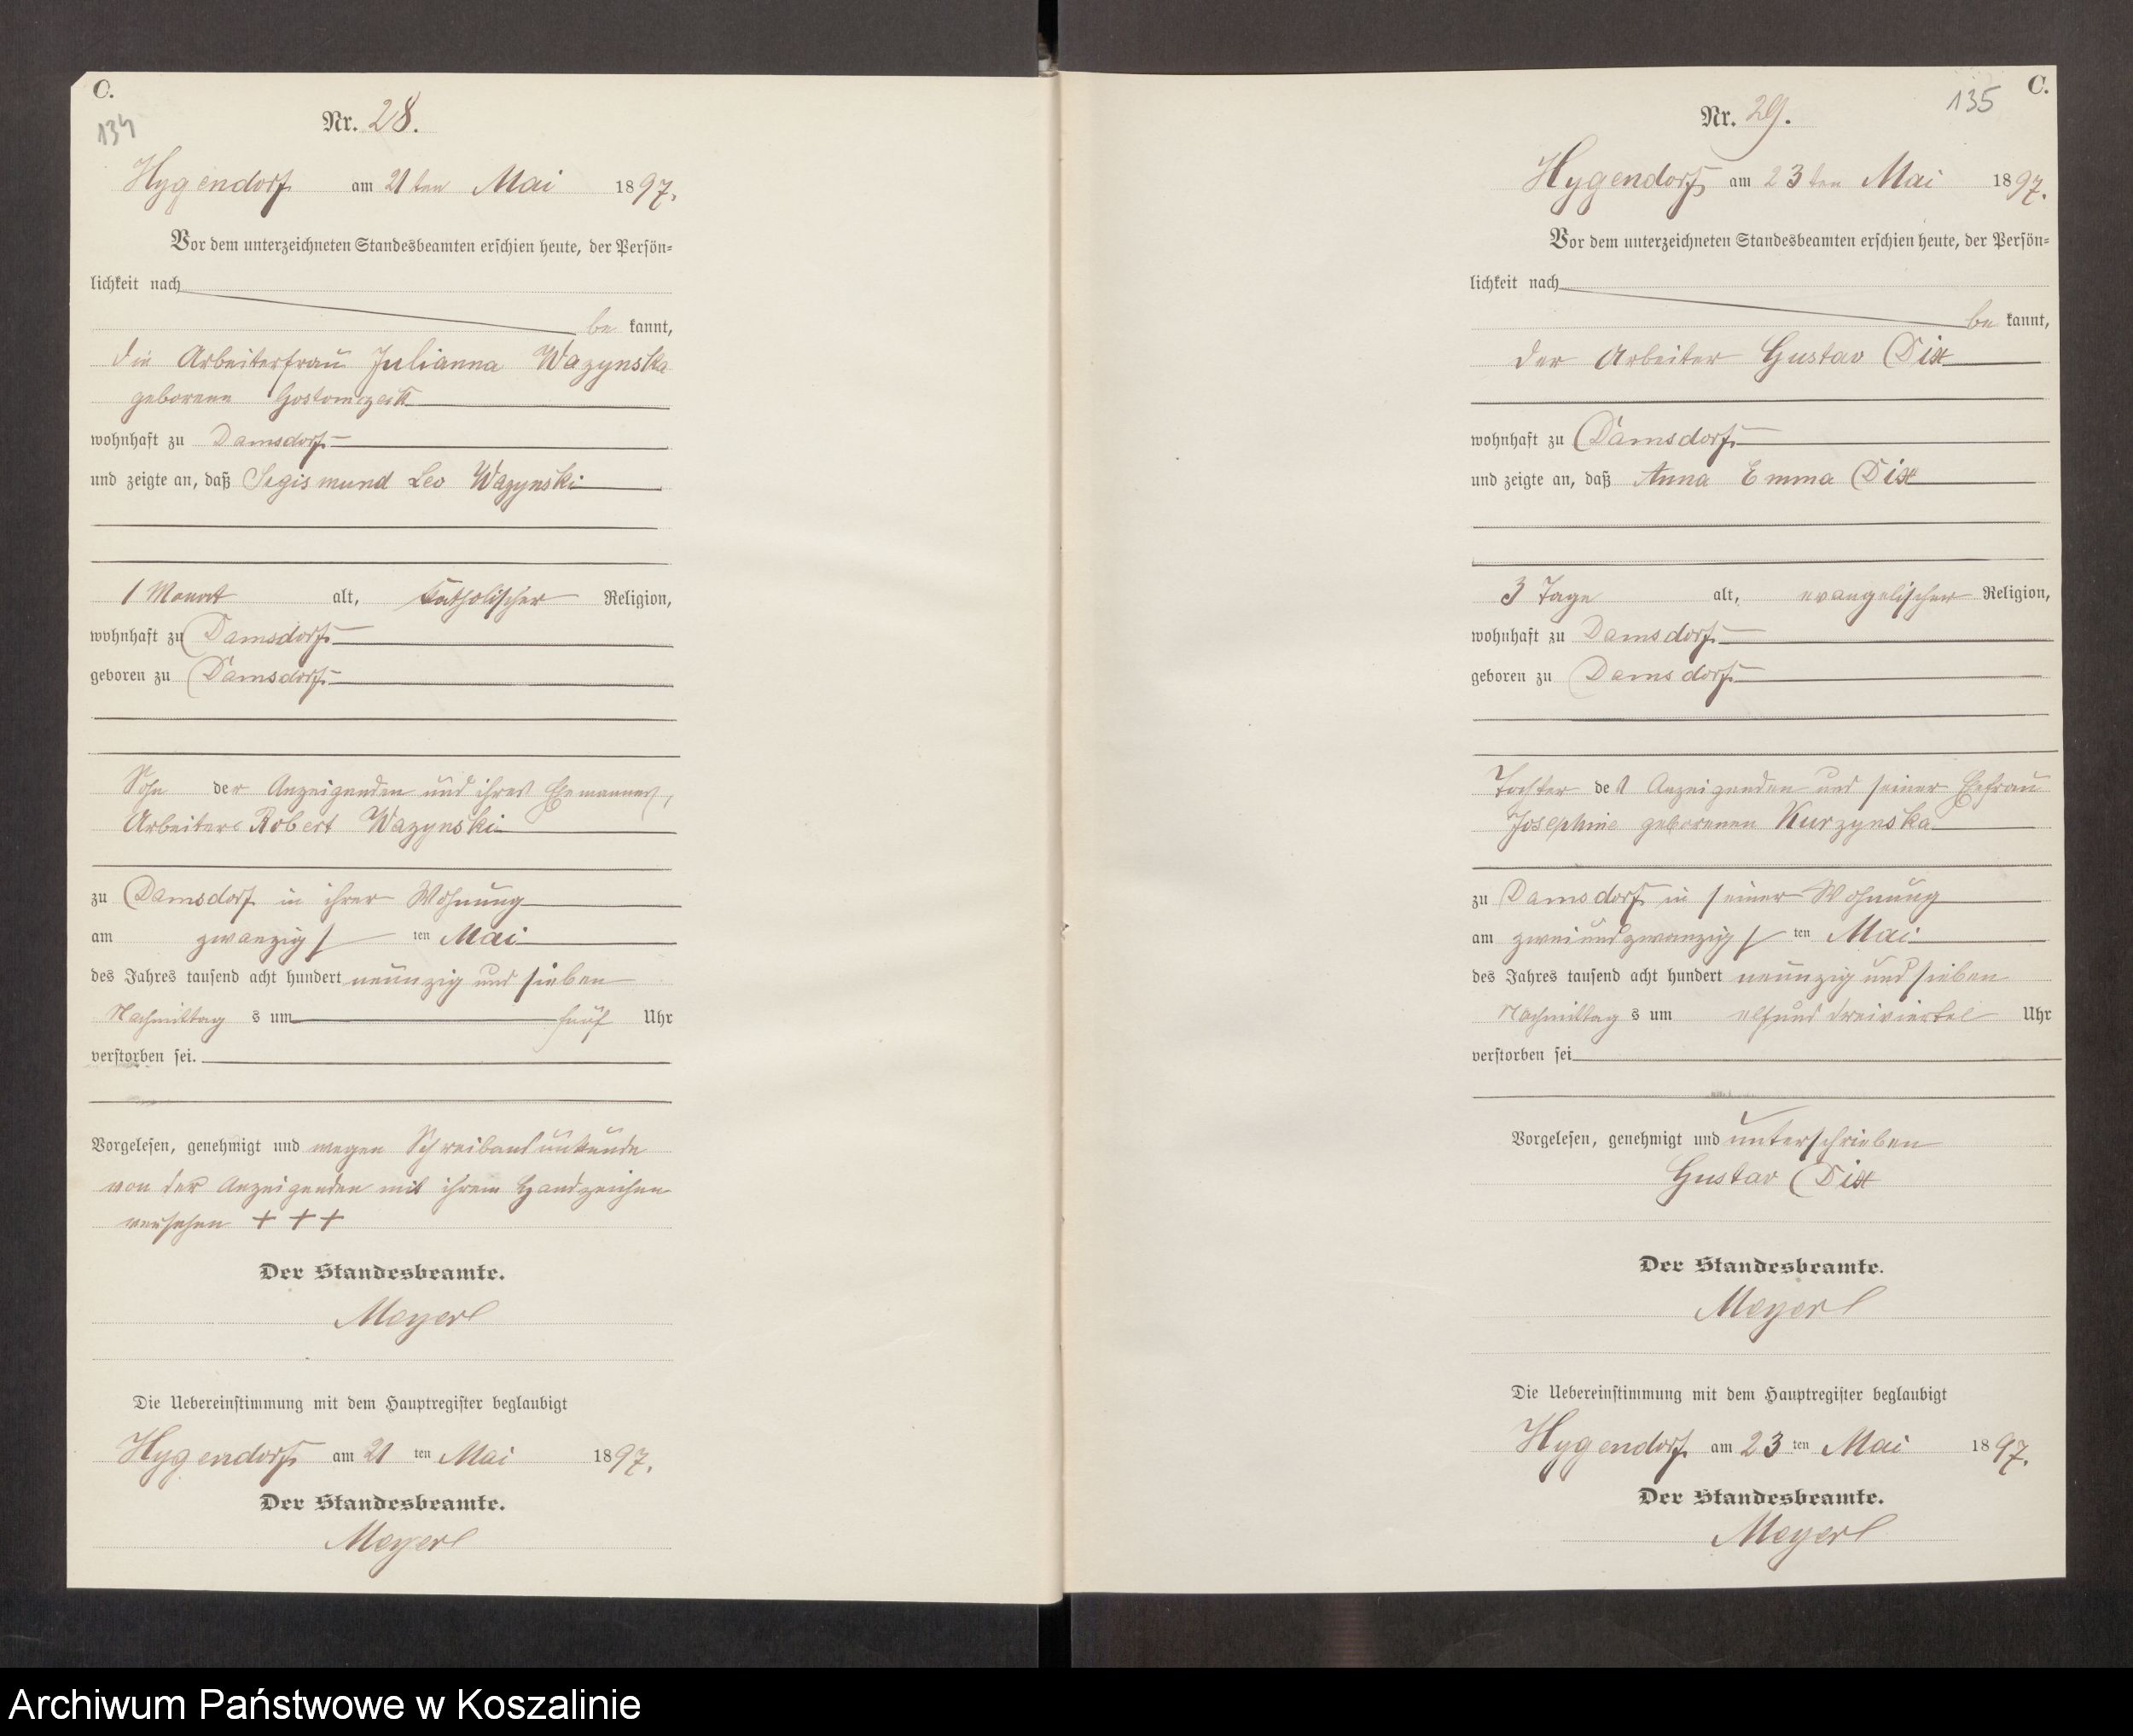 C.
134
Nr. 28.
Hygendorf am 21ten Mai 1897.
Vor dem unterzeichneten Standesbeamten erschien heute, der Persön-
lichkeit nach
be kannt,
die Arbeiterfrau Julianna Wazynska
geborene
wohnhaft zu Damsdorf
und zeigte an, daß Segismund Leo Wazynski
1 Monat alt, katholischer Religion,
wohnhaft zu Damsdorf
geboren zu Damsdorf
Sohn der Anzeigenden und ihres Ehemannes,
Arbeiters Robert Wazynski
zu Damsdorf in ihrer Wohnung
am zwanzigs ten Mai
des Jahres tausend acht hundert neunzig und sieben
Nachmittag s um fünf Uhr
verstorben sei.
Vorgelesen, genehmigt und wegen Schreibensunkunde
von der Anzeigenden mit ihrem Handzeichen
versehen + + +
Der Standesbeamte.
Meyerl
Die Uebereinstimmung mit dem Hauptregister beglaubigt
Hygendorf am 21 ten Mai 1897.
Der Standesbeamte.
Meyerl
C.
135
Nr. 29.
Hygendorf am 23ten Mai 1897.
Vor dem unterzeichneten Standesbeamten erschien heute, der Persön-
lichkeit nach
be kannt,
der Arbeiter Gustav Dix
wohnhaft zu Damsdorf
und zeigte an, daß Anna Emma Dix
3 Tage alt, evangelischer Religion,
wohnhaft zu Damsdorf
geboren zu Damsdorf
Tochter des Anzeigenden und seiner Ehefrau
Josephine geborenen Kurzynska
zu Damsdorf in seiner Wohnung
am zweiundzwanzigs ten Mai
des Jahres tausend acht hundert neunzig und sieben
Nachmittag s um elfund dreiviertel Uhr
verstorben sei
Vorgelesen, genehmigt und unterschrieben
Gustav Dix
Der Standesbeamte.
Meyerl
Die Uebereinstimmung mit dem Hauptregister beglaubigt
Hygendorf am 23 ten Mai 1897.
Der Standesbeamte.
Meyerl
Archiwum Państwowe w Koszalinie